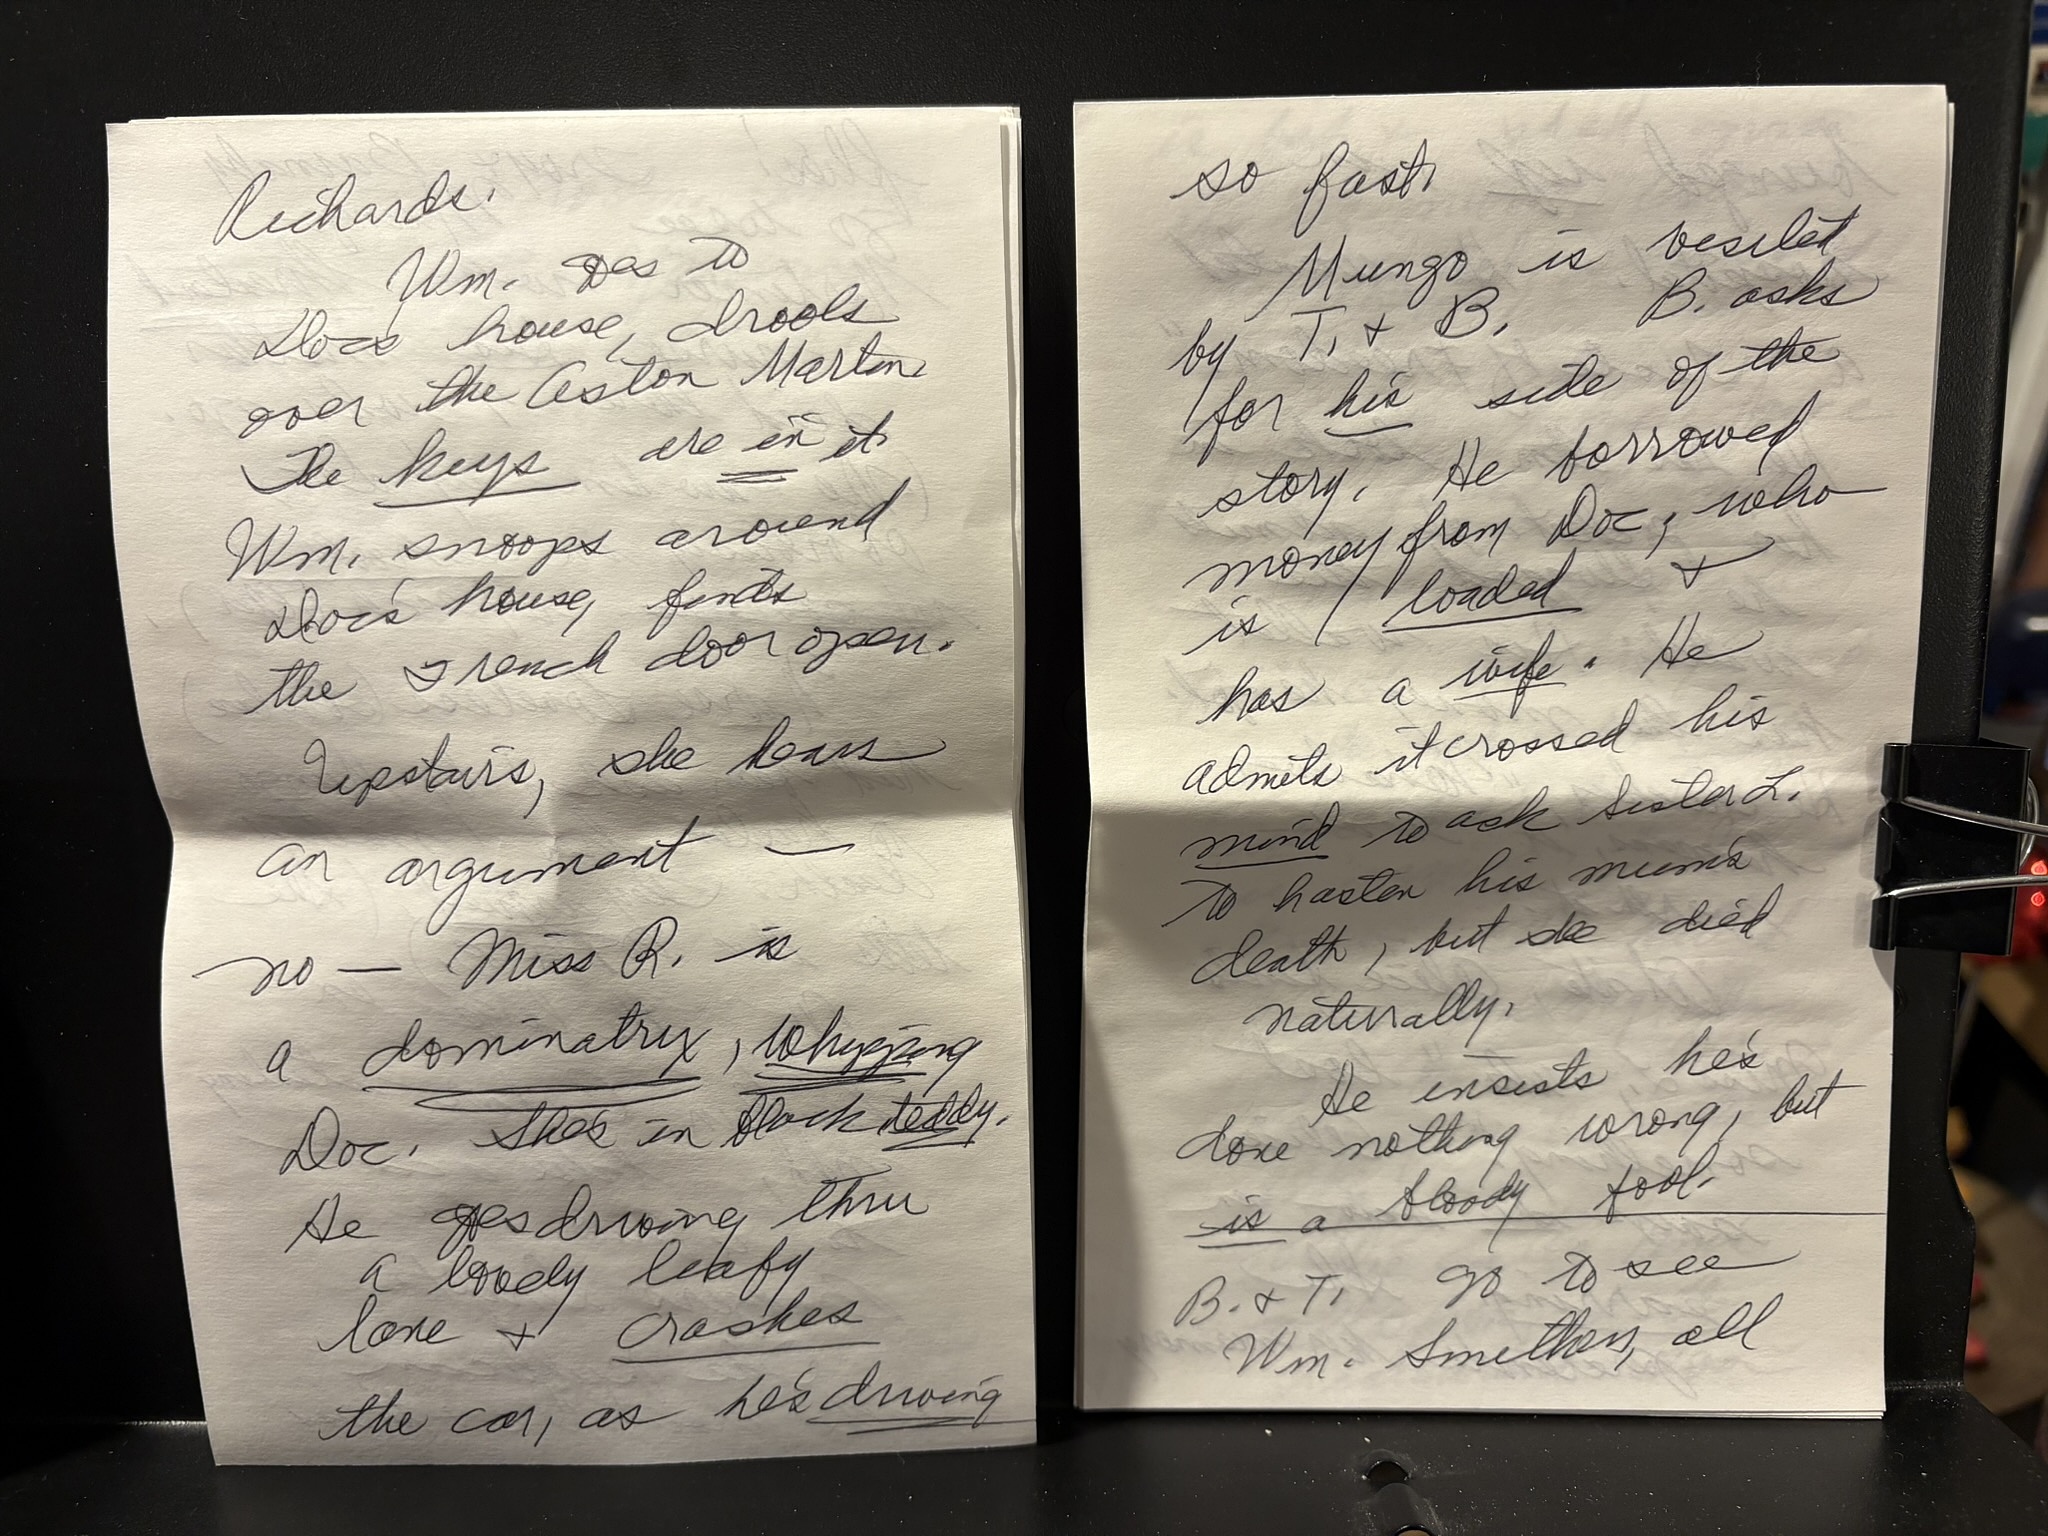 Richards.
Wm. goes to
Doc's house, drools
over the Aston Martin.
The keys are in it.
Wm. snoops around
Doc's house, finds
the French door open.
Upstairs, she hears
an argument —
no — Miss R. is
a dominatrix, whipping
Doc. She's in black teddy.
He goes driving thru
a leafy
lane + crashes
the car, as he's driving
so fast.
Mungo is visited
by T. + B. B. asks
for his side of the
story. He borrowed
money from Doc, who
is loaded +
has a wife. He
admits it crossed his
mind to ask Sister L.
to hasten his mum's
death, but she died
naturally.
He insists he's
done nothing wrong, but
is a bloody fool.
B. + T. go to see
Wm. Smithers, all